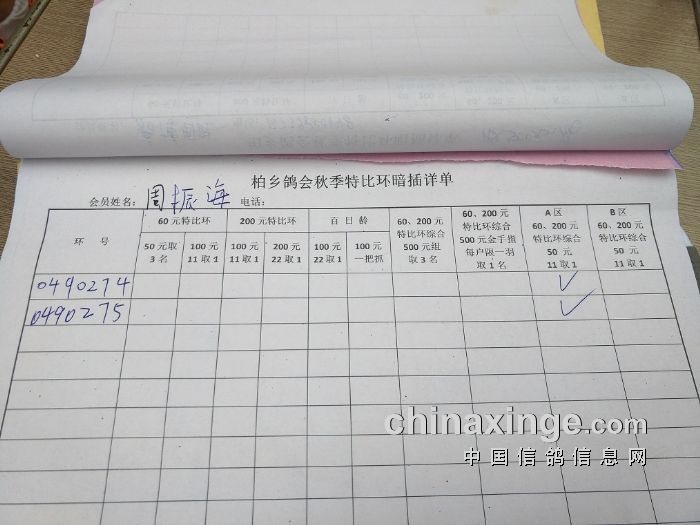 柏乡鸽会秋季特比环暗插详单
会员姓名：周振海 电话：
环 号
60元特比环
50元取
3名
100元
11取1
200元特比环
100元
11取1
200元
22取1
百日龄
100元
22取1
100元
一把抓
60、200元
特比环综合
500元组
取3名
60、200元
特比环综合
500元金手指
每户跟一羽
取1名
A区
60、200元
特比环综合
50元
11取1
B区
60、200元
特比环综合
50元
11取1
0490274 ✓
0490275 ✓
chinaxinge.com
中国信鸽信息网